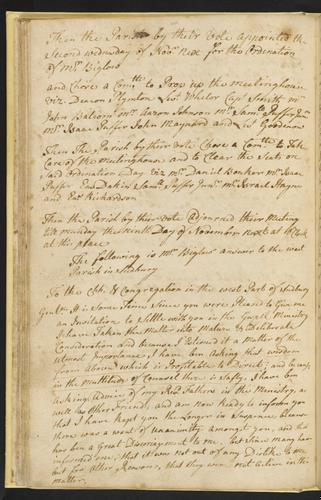 Then the Parish by their Vote appointed the
Second wednsday of Nov.r next for the Ordination
of Mr. Biglow
and Chose a Comtte to Prop up the meetinghouse
viz. Deacon Plymton Lt. Wheler Capt. Smith Mr.
John Balcom Mr. Aaron Johnson Mr. Saml. Puffer Jun.
Mr. Isaac Puffer John Maynard and Lt. Goodenow
Then The Parish by their Vote Chose a Comtte to Take
Care of the Meetinghouse and to Clear the Seats on
Said Ordination Day viz Mr. Daniel Bonker Mr. Isaac
Puffer Ens. Dakin Saml. Puffer Junr. Mr. Israel Hayns
and Ens. Richardson
Then the Parish by their Vote adjourned their Meeting
till monday the Ninth Day of November next at o'Clock
at this place
The following is Mr. Biglows answer to the west
Parish in Sudbury
To the Chh. & Congregation in the west Part of Sudbury
Gentn. It is Some Time Since you were Pleased to Give me
an Invitation to Settle with you in the Gospel Ministry
I have Taken the Matter into Mature & Deliberate
Consideration and because I Esteem'd it a Matter of the
utmost Importance I have ben asking that wisdom
from above which is Profitable to Derict; and because
in the multitude of Councel there is Safty, I have ben
asking advice of my Revd. Fathers in the Ministry, as
well as Other Friends, and am now Ready to inform you
that I have kept you the Longer in Suspence because
there was a want of unanimity amongst you, and this
has ben a Great Discouragement to me, but Since many have
informed me, that it was not out of any Dislike to me
but for Other Reasons, that they were not active in the
matter.